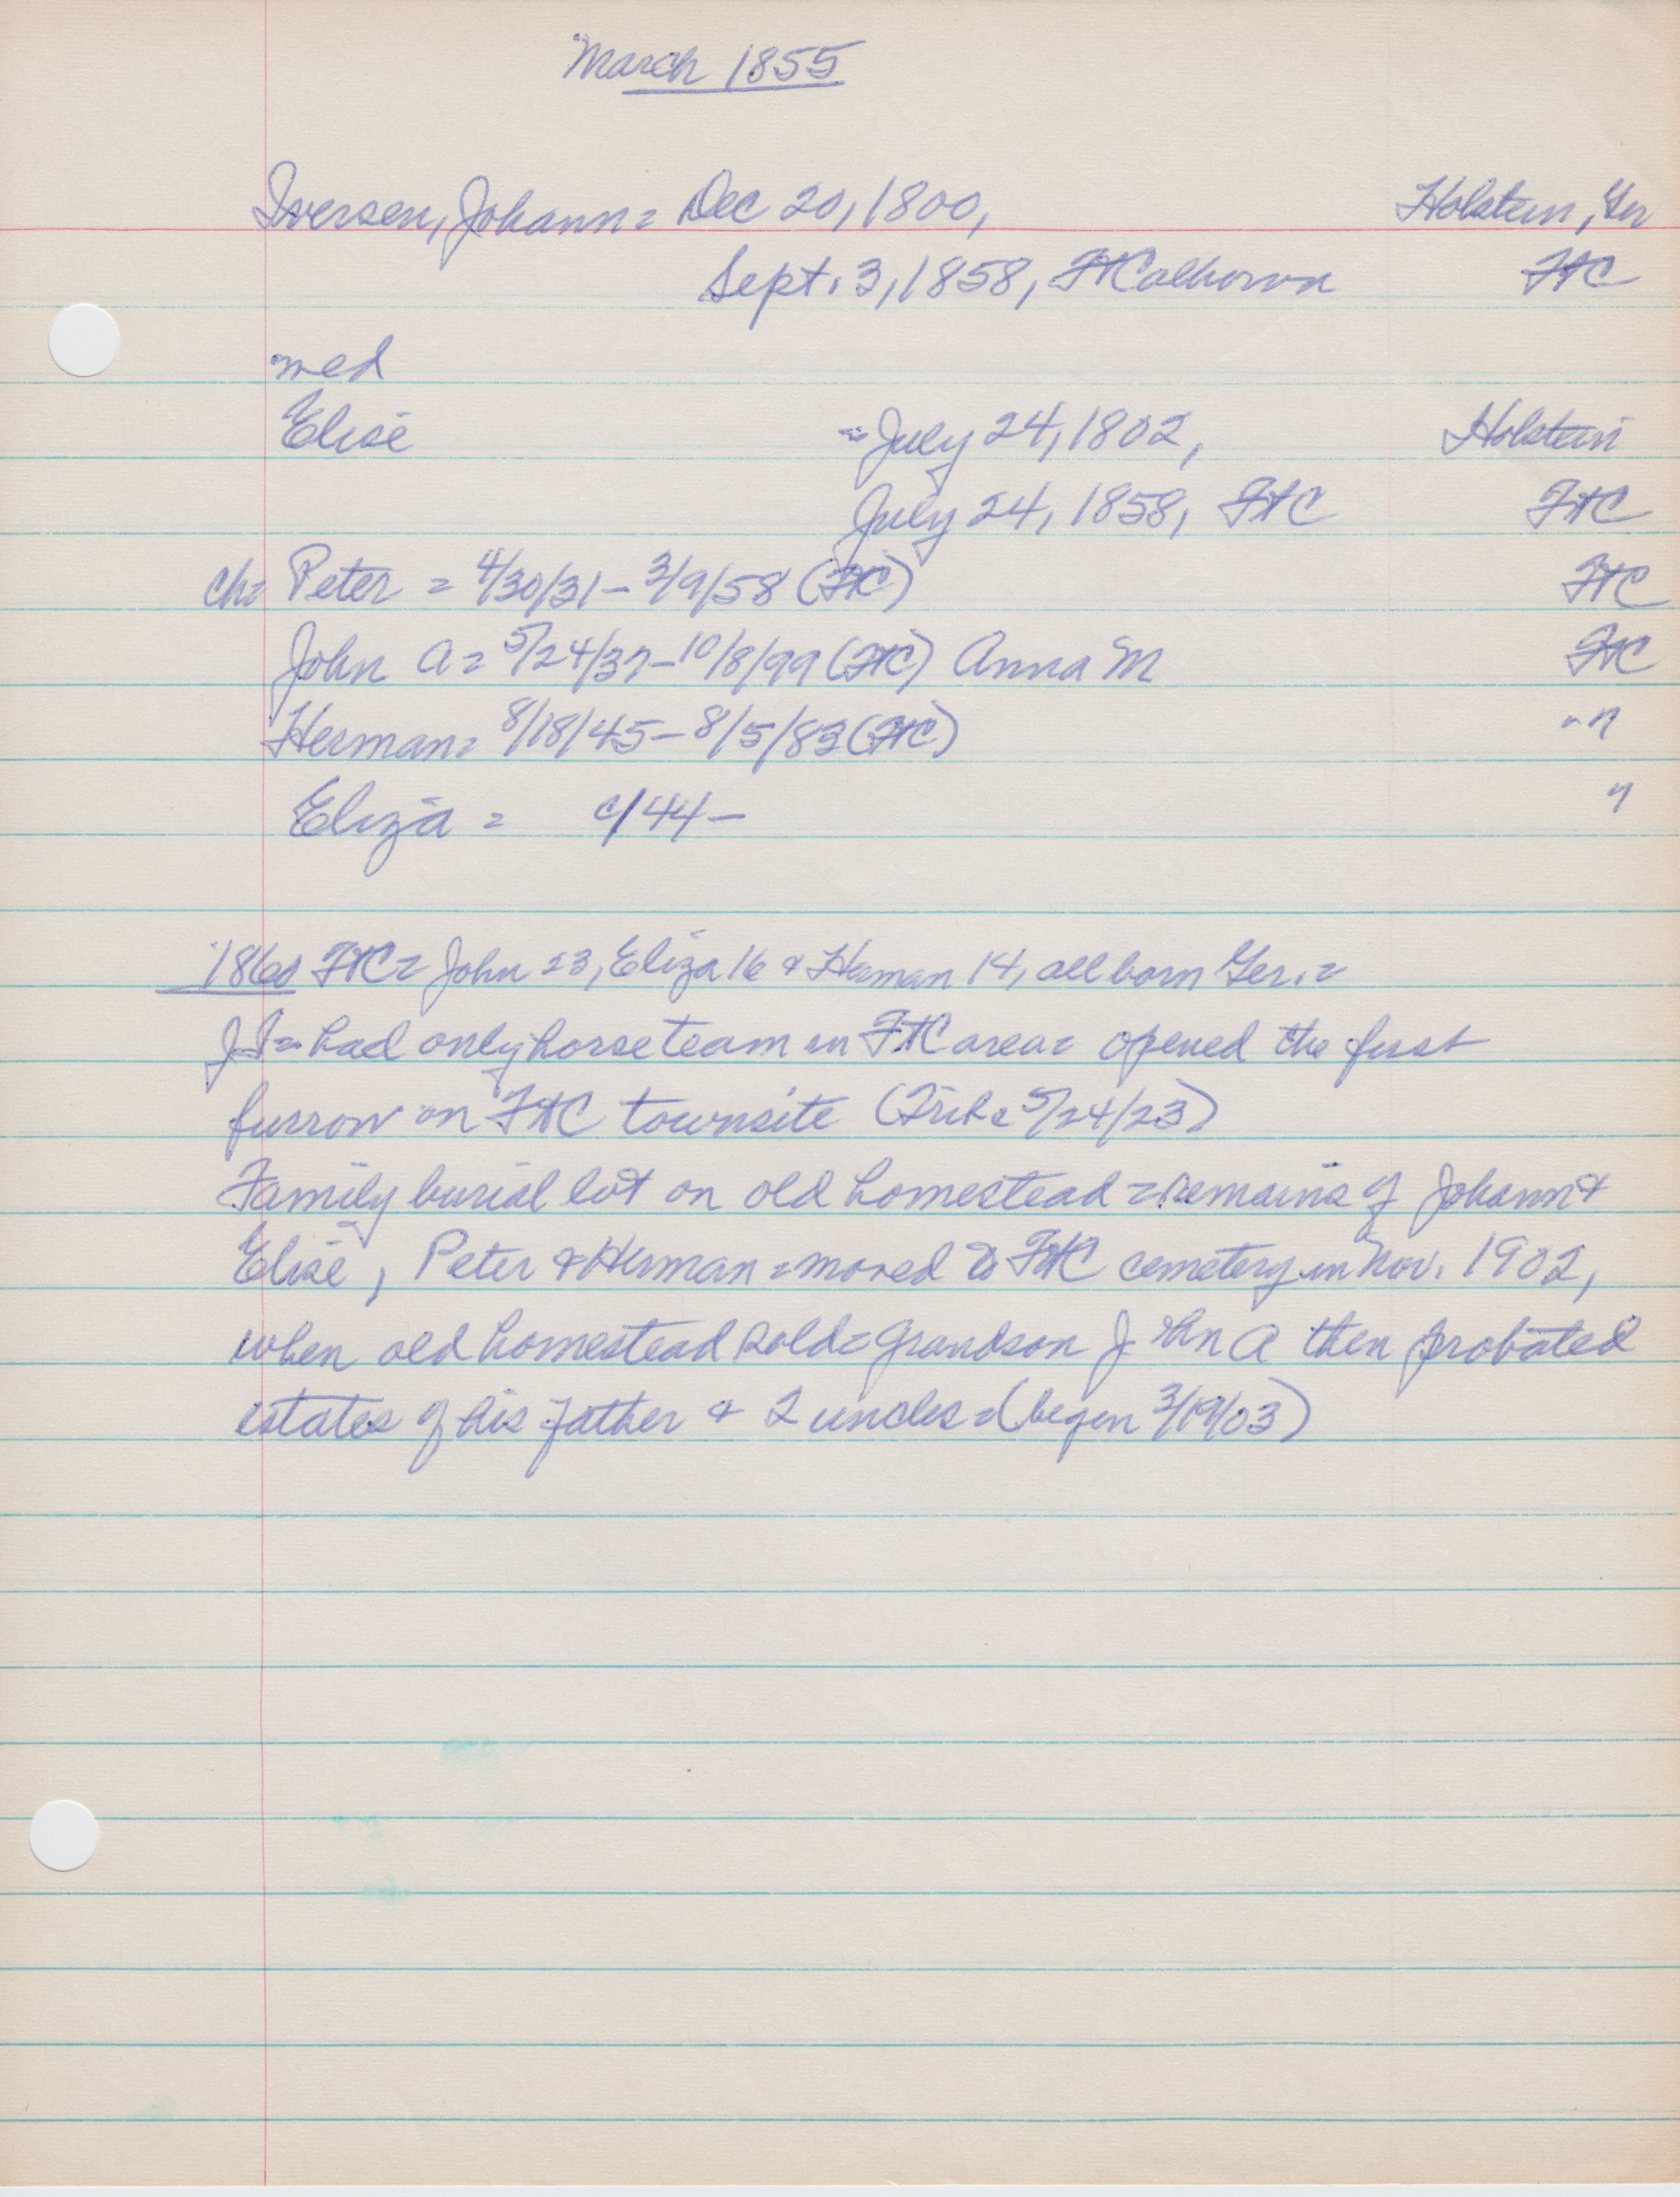 March 1855
Iversen, Johann = Dec 20, 1800, Holstein, Ger
Sept. 3, 1858, FtCalhoun FtC
med
Elise = July 24, 1802, Holstein
July 24, 1858, FtC FtC
ch= Peter = 4/30/31 - 3/9/58 (FtC) FtC
John A = 5/24/37 - 10/8/99 (FtC) Anna M FtC
Herman = 8/18/45 - 8/5/83 (FtC) " "
Eliza = c/44 - "
1860 FtC = John 23, Eliza 16 & Herman 14, all born Ger. =
JI = had only horse team in FtC area = opened the first
furrow on FtC townsite (Trib = 5/24/23)
Family burial lot on old homestead = remains of Johann &
Elise, Peter & Herman = moved to FtC cemetery in Nov. 1902,
when old homestead sold = grandson John A then probated
estates of his father & 2 uncles = (began 3/19/03)